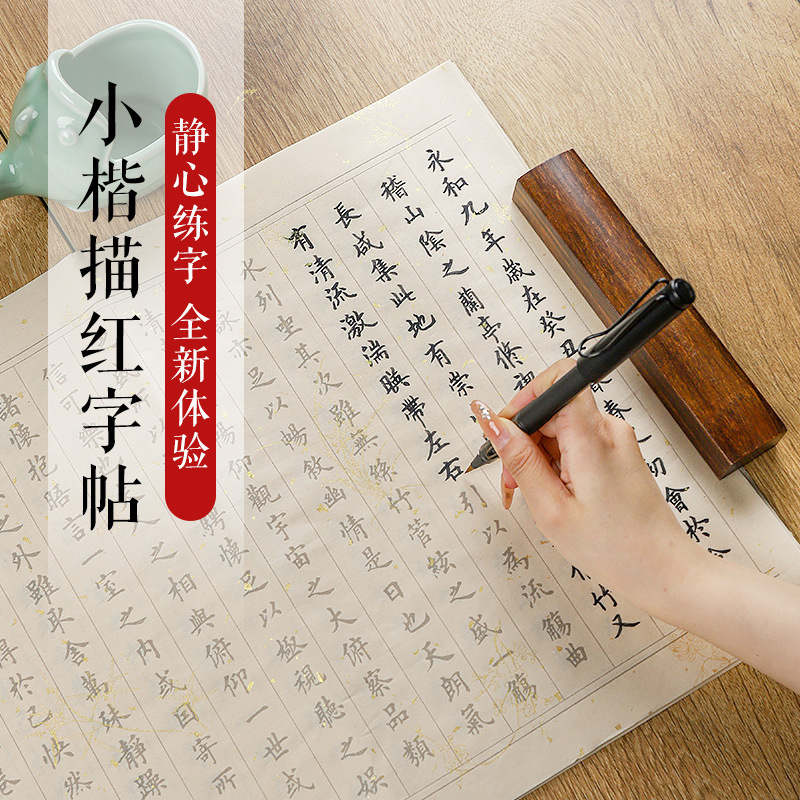 小楷描红字帖
静心练字 全新体验
永和九年歲在癸丑春之初會於會
稽山陰之蘭亭修禊
長咸集此地有崇竹又
有清流激湍暎帶左右引以為流觴曲
水列坐其次雖無絲竹管絃之盛一觴
詠亦足以暢敘幽情是日也天朗氣
清暢仰觀宇宙之大俯察品類
騁懷足以極視聽之娛
信可樂人之相與俯仰一世或
諸懷抱晤言一室之內或因寄所
之外雖取舍萬殊靜躁
得於己快然